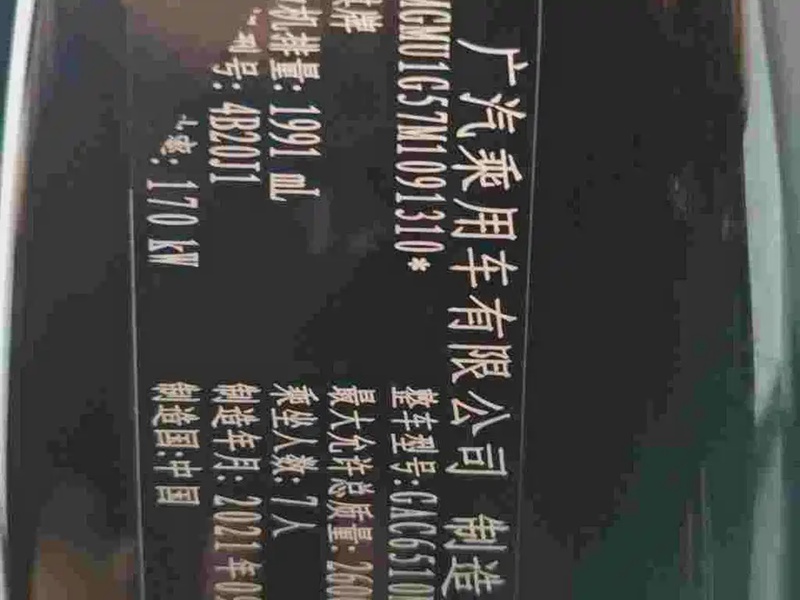 广汽乘用车有限公司 制造
MGMU1G57M1091310*
整车型号:GAC6510
牌
最大允许总质量:260
机排量:1991 mL
乘坐人数:7人
型号:4B20J1
制造年月:2021年0
170 kW
制造国:中国